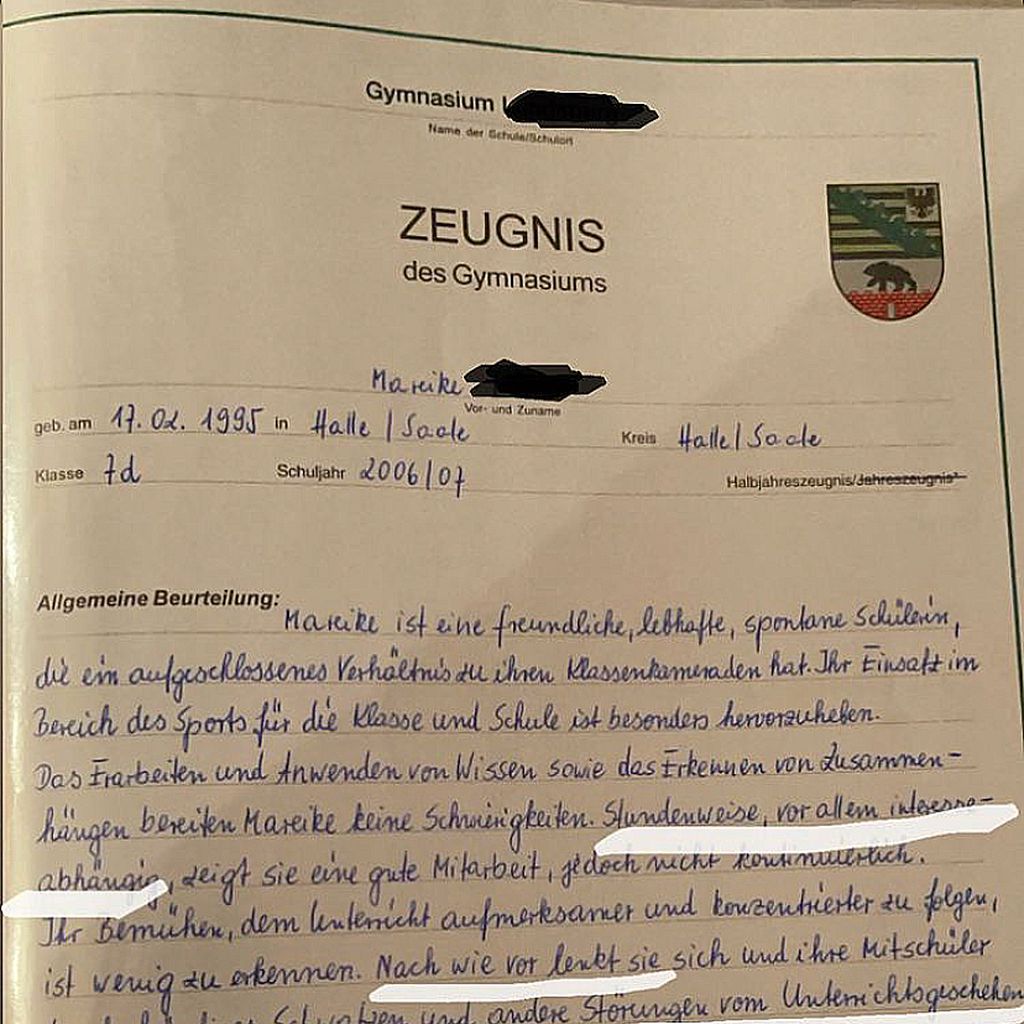 Gymnasium
Name der Schule/Schulort
ZEUGNIS
des Gymnasiums
Mareike
Vor- und Zuname
geb. am 17.02.1995 in Halle/Saale Kreis Halle/Saale
Klasse 7d Schuljahr 2006/07 Halbjahreszeugnis/Jahreszeugnis*
Allgemeine Beurteilung: Mareike ist eine freundliche, lebhafte, spontane Schülerin,
die ein aufgeschlossenes Verhältnis zu ihren Klassenkameraden hat. Ihr Einsatz im
Bereich des Sports für die Klasse und Schule ist besonders hervorzuheben.
Das Erarbeiten und Anwenden von Wissen sowie das Erkennen von Zusammen-
hängen bereiten Mareike keine Schwierigkeiten. Stundenweise, vor allem interesse-
abhängig, zeigt sie eine gute Mitarbeit, jedoch nicht kontinuierlich.
Ihr Bemühen, dem Unterricht aufmerksamer und konzentrierter zu folgen,
ist wenig zu erkennen. Nach wie vor lenkt sie sich und ihre Mitschüler
Schwatzen und andere Störungen vom Unterrichtsgeschehen